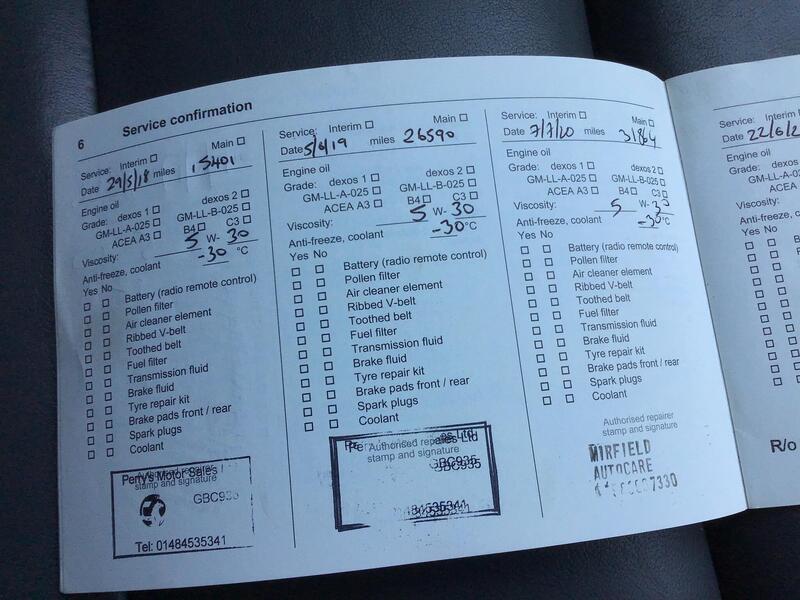 6 Service confirmation
Service: Interim ☐ Main ☐
Date 29/5/18 miles 15401
Engine oil
Grade: dexos 1 ☐ dexos 2 ☐
GM-LL-A-025 ☐ GM-LL-B-025 ☐
ACEA A3 ☐ B4 ☐ C3 ☐
Viscosity: 5 W- 30
Anti-freeze, coolant -30 °C
Yes No
☐ ☐ Battery (radio remote control)
☐ ☐ Pollen filter
☐ ☐ Air cleaner element
☐ ☐ Ribbed V-belt
☐ ☐ Toothed belt
☐ ☐ Fuel filter
☐ ☐ Transmission fluid
☐ ☐ Brake fluid
☐ ☐ Tyre repair kit
☐ ☐ Brake pads front / rear
☐ ☐ Spark plugs
☐ ☐ Coolant
Authorised repairer
Perry's Motor Sales
stamp and signature
GBC935
Tel: 01484535341
Service: Interim ☐ Main ☐
Date 5/6/19 miles 26590
Engine oil
Grade: dexos 1 ☐ dexos 2 ☐
GM-LL-A-025 ☐ GM-LL-B-025 ☐
ACEA A3 ☐ B4 ☐ C3 ☐
Viscosity: 5 W- 30
Anti-freeze, coolant -30 °C
Yes No
☐ ☐ Battery (radio remote control)
☐ ☐ Pollen filter
☐ ☐ Air cleaner element
☐ ☐ Ribbed V-belt
☐ ☐ Toothed belt
☐ ☐ Fuel filter
☐ ☐ Transmission fluid
☐ ☐ Brake fluid
☐ ☐ Tyre repair kit
☐ ☐ Brake pads front / rear
☐ ☐ Spark plugs
☐ ☐ Coolant
Authorised repairer
stamp and signature
GBC935
Service: Interim ☐ Main ☐
Date 7/7/20 miles
Engine oil
Grade: dexos 1 ☐ dexos 2 ☐
GM-LL-A-025 ☐ GM-LL-B-025 ☐
ACEA A3 ☐ B4 ☐ C3 ☐
Viscosity: 5 W- 30
Anti-freeze, coolant -30 °C
Yes No
☐ ☐ Battery (radio remote control)
☐ ☐ Pollen filter
☐ ☐ Air cleaner element
☐ ☐ Ribbed V-belt
☐ ☐ Toothed belt
☐ ☐ Fuel filter
☐ ☐ Transmission fluid
☐ ☐ Brake fluid
☐ ☐ Tyre repair kit
☐ ☐ Brake pads front / rear
☐ ☐ Spark plugs
☐ ☐ Coolant
Authorised repairer
stamp and signature
MIRFIELD
AUTOCARE
Service: Interim
Date 22/6/2
Engine oil
Grade: dexos
GM-LL-A-025
ACEA A3
Viscosity:
Anti-freeze, coolant
Yes No
R/o